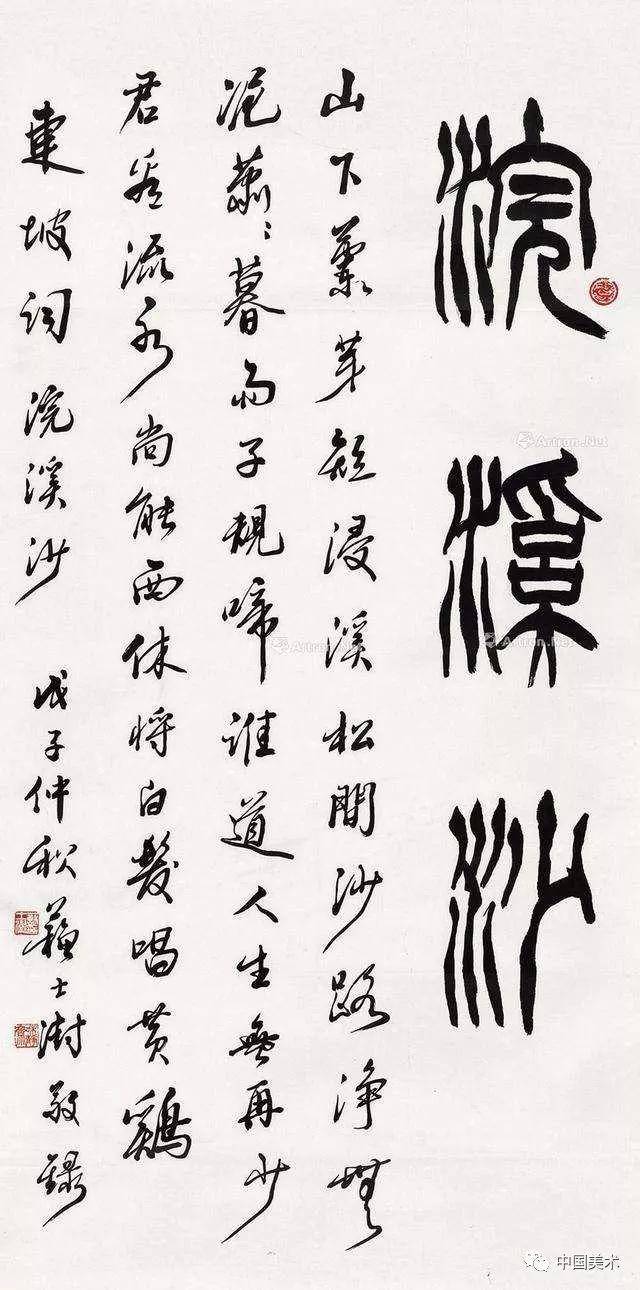 浣溪沙
山下蘭芽短浸溪松間沙路淨無
泥蕭〻暮雨子規啼誰道人生無再少
君看流水尚能西休將白髮唱黃鷄
東坡詞浣溪沙 戊子仲秋蘇士澍敬錄
Artron.Net
Artron.Net
Artron.Net
中国美术